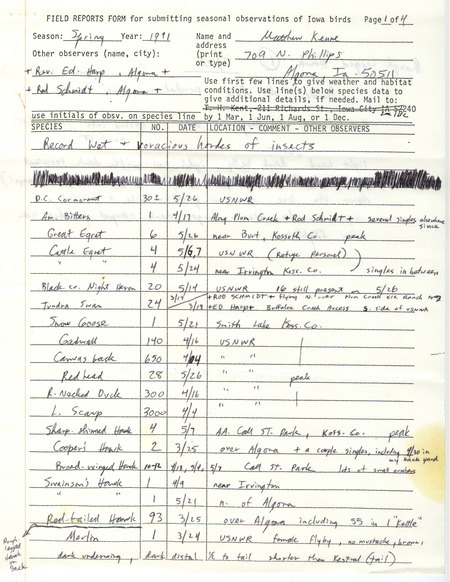 FIELD REPORTS FORM for submitting seasonal observations of Iowa birds Page 1 of 4
Season: Spring Year: 1991 Name and Matthew Kenne
address 709 N. Phillips
Other observers (name, city): (print
or type) Algona Ia. 50511
+ Rev. Ed. Harp, Algona +
+ Rod Schmidt, Algona +
Use first few lines to give weather and habitat
conditions. Use line(s) below species data to
give additional details, if needed. Mail to:
T. H. Kent, 211 Richards St., Iowa City IA 52240
use initials of obsv. on species line by 1 Mar, 1 Jun, 1 Aug, or 1 Dec.
SPECIES NO. DATE LOCATION - COMMENT - OTHER OBSERVERS
Record Wet + voracious hordes of insects
D.C. Cormorant 301 5/26 USNWR
Am. Bittern 1 4/17 Along Plum Creek + Rod Schmidt + several singles elsewhere since
Great Egret 6 5/26 near Burt, Kossuth Co. peak
Cattle Egret 4 5/6,7 USNWR (Refuge Personel)
" " 4 5/24 near Irvington Koss. Co. singles in between
Black-cr. Night Heron 20 5/14 USNWR 16 still present on 5/26
Tundra Swan 24 3/19 + ROD SCHMIDT + flying N. over Plum Creek
3/18 + ED HARP + Buffalo Creek Access S. side of USNWR
Snow Goose 1 5/21 Smith Lake Koss. Co.
Gadwall 140 4/16 USNWR
Canvas back 650 4/04 " "
Redhead 28 5/26 " " peak
R. Necked Duck 300 4/16 " "
L. Scaup 3000 4/4 " "
Sharp-shinned Hawk 4 5/7 AA. Call St. Park, Koss. Co. peak
Cooper's Hawk 2 3/25 over Algona + a couple singles, including 4/30 in my back yard
Broad-winged Hawk 10-12 4/18, 5/4, 5/7 Call St. Park lots of small numbers
Swainson's Hawk 1 4/9 near Irvington
" " 1 5/21 n. of Algona
Red-tailed Hawk 93 3/25 over Algona including 55 in 1 "Kettle"
Rough legged Hawk on Back
Merlin 1 3/24 USNWR female flyby, no mustache, brown,
dark underwing, dark distal 1/2 to tail shorter than Kestral (tail)